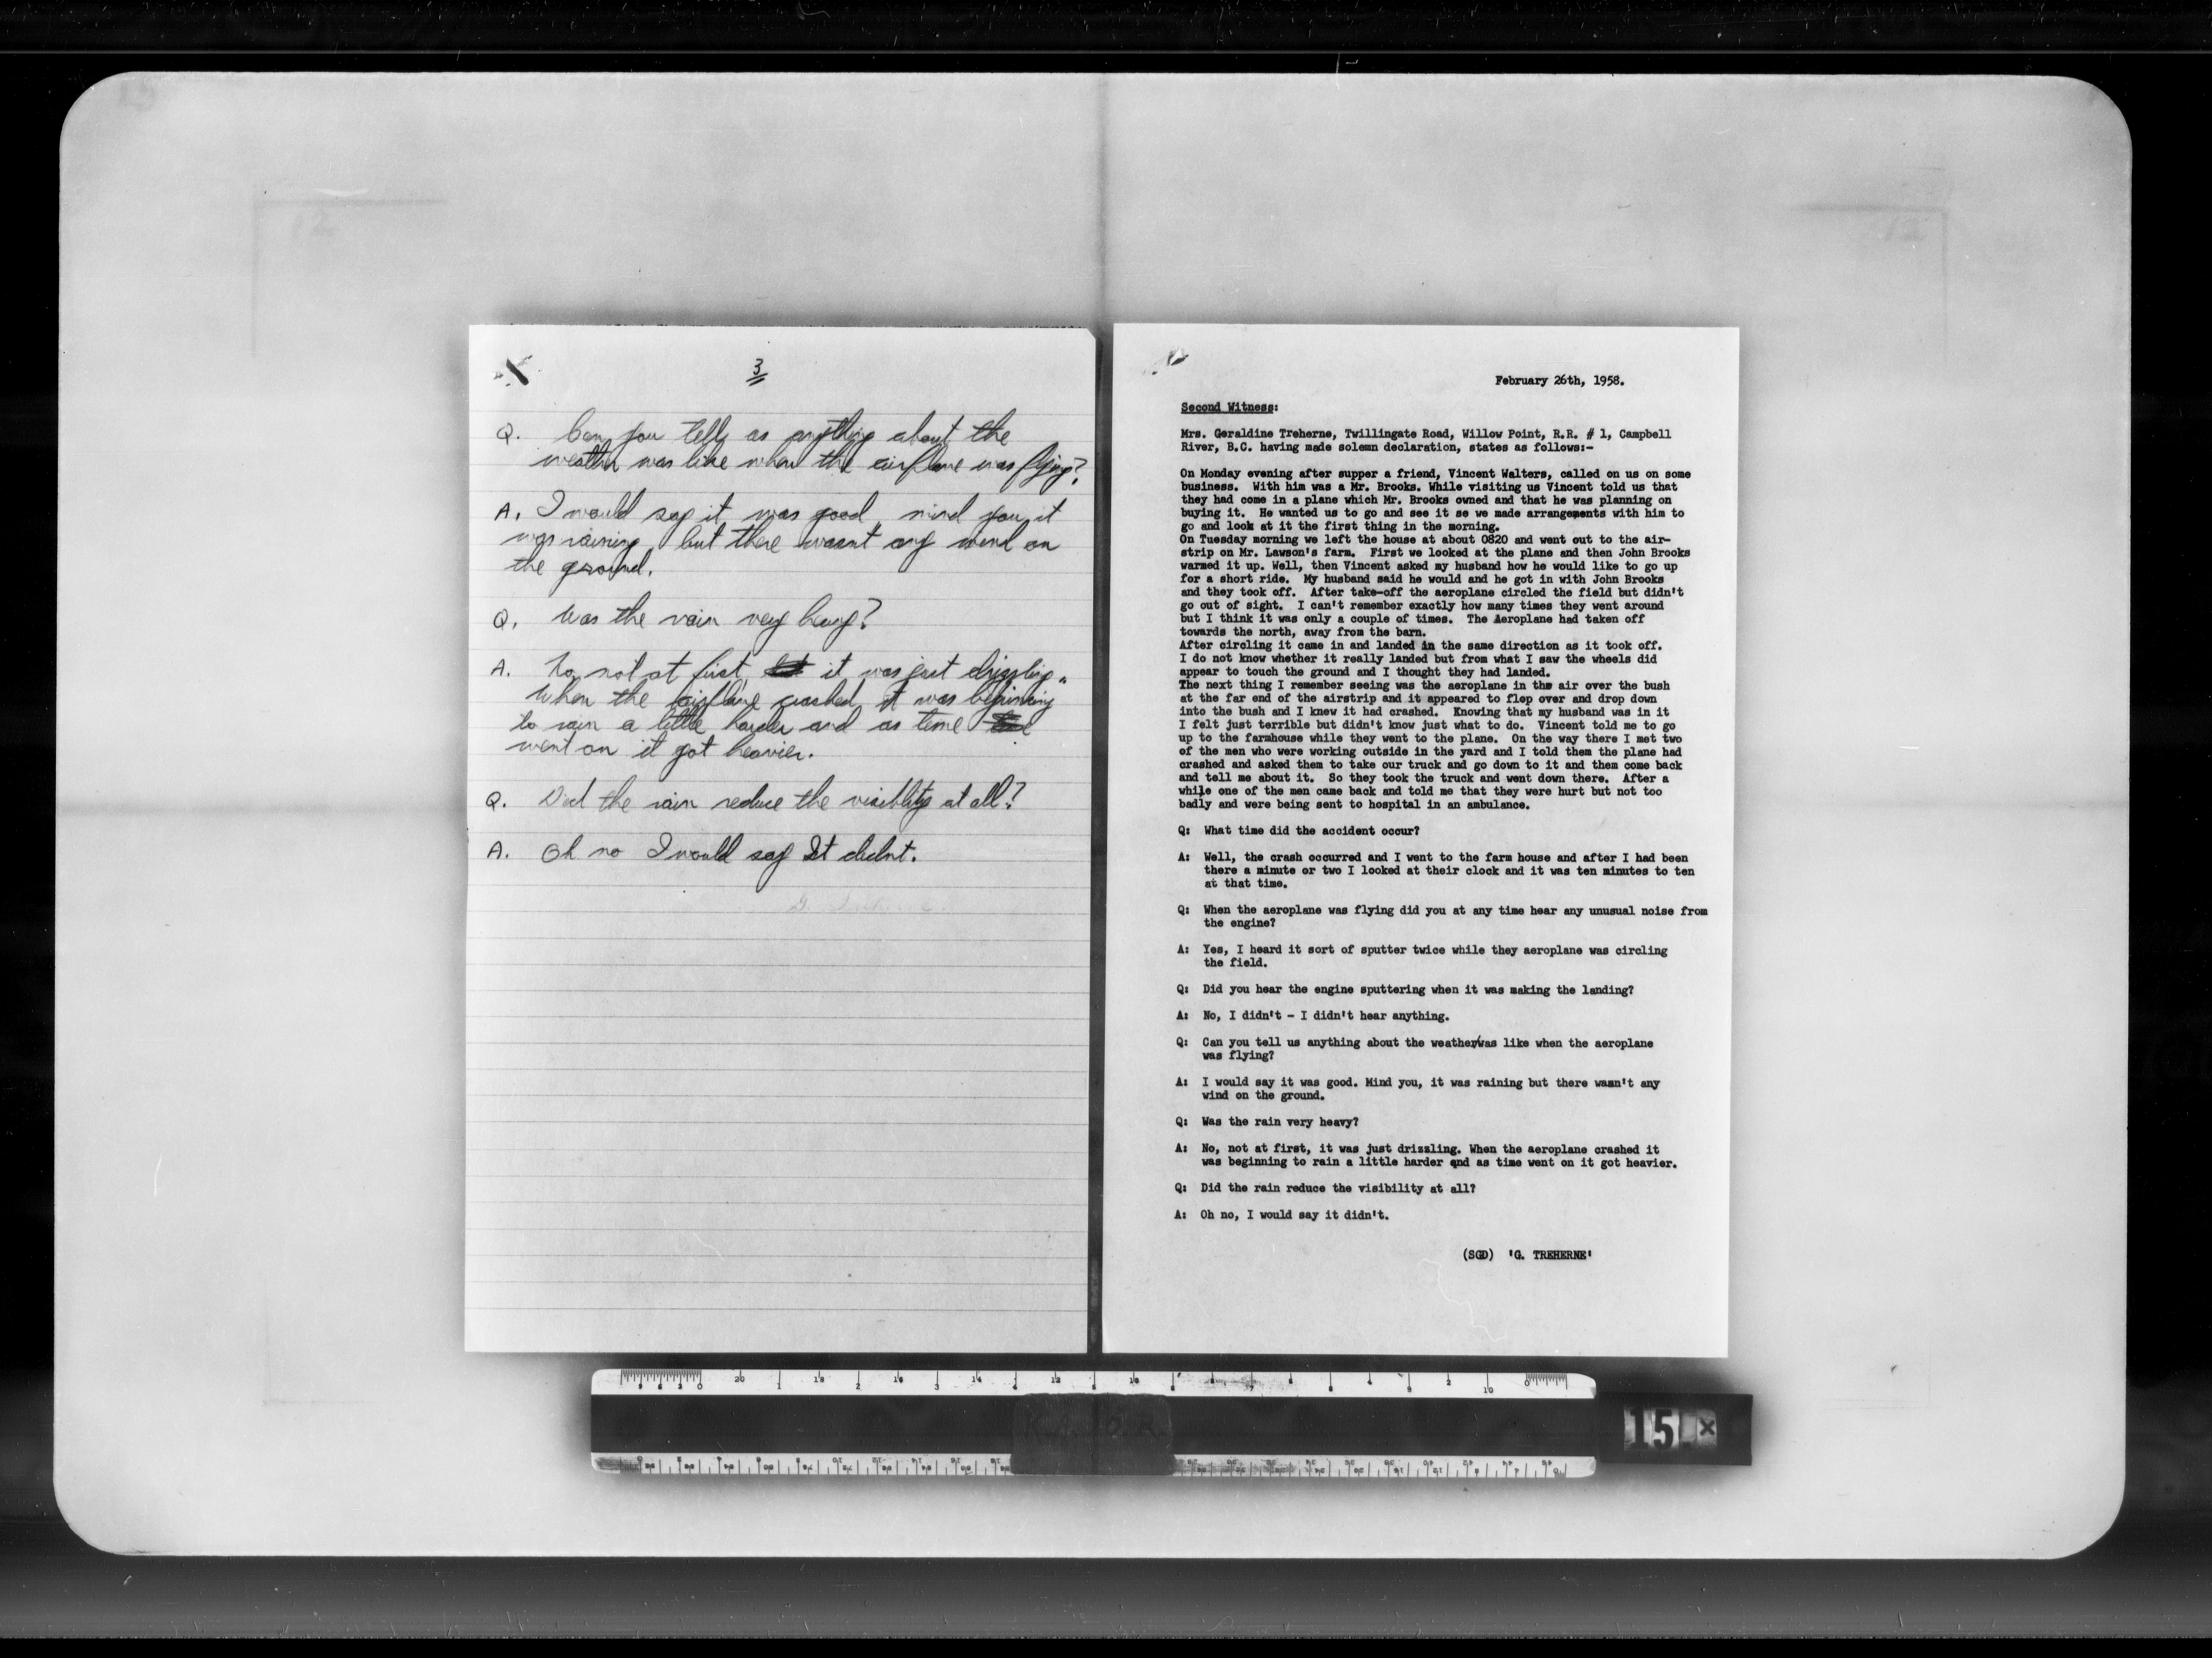 3
Q. Can you tell us anything about the
weather was like when the airplane was flying?
A. I would say it was good, mind you it
was raining but there wasnt any wind on
the ground.
Q. Was the rain very heavy?
A. No not at first it was just drizzling.
When the airplane crashed it was beginning
to rain a little harder and as time
went on it got heavier.
Q. Did the rain reduce the visiblity at all?
A. Oh no I would say It didnt.
February 26th, 1958.
Second Witness:
Mrs. Geraldine Treherne, Twillingate Road, Willow Point, R.R. # 1, Campbell
River, B.C. having made solemn declaration, states as follows:-
On Monday evening after supper a friend, Vincent Walters, called on us on some
business. With him was a Mr. Brooks. While visiting us Vincent told us that
they had come in a plane which Mr. Brooks owned and that he was planning on
buying it. He wanted us to go and see it se we made arrangements with him to
go and look at it the first thing in the morning.
On Tuesday morning we left the house at about 0820 and went out to the air-
strip on Mr. Lawson's farm. First we looked at the plane and then John Brooks
warmed it up. Well, then Vincent asked my husband how he would like to go up
for a short ride. My husband said he would and he got in with John Brooks
and they took off. After take-off the aeroplane circled the field but didn't
go out of sight. I can't remember exactly how many times they went around
but I think it was only a couple of times. The Aeroplane had taken off
towards the north, away from the barn.
After circling it came in and landed in the same direction as it took off.
I do not know whether it really landed but from what I saw the wheels did
appear to touch the ground and I thought they had landed.
The next thing I remember seeing was the aeroplane in the air over the bush
at the far end of the airstrip and it appeared to flop over and drop down
into the bush and I knew it had crashed. Knowing that my husband was in it
I felt just terrible but didn't know just what to do. Vincent told me to go
up to the farmhouse while they went to the plane. On the way there I met two
of the men who were working outside in the yard and I told them the plane had
crashed and asked them to take our truck and go down to it and them come back
and tell me about it. So they took the truck and went down there. After a
while one of the men came back and told me that they were hurt but not too
badly and were being sent to hospital in an ambulance.
Q: What time did the accident occur?
A: Well, the crash occurred and I went to the farm house and after I had been
there a minute or two I looked at their clock and it was ten minutes to ten
at that time.
Q: When the aeroplane was flying did you at any time hear any unusual noise from
the engine?
A: Yes, I heard it sort of sputter twice while they aeroplane was circling
the field.
Q: Did you hear the engine sputtering when it was making the landing?
A: No, I didn't - I didn't hear anything.
Q: Can you tell us anything about the weather/was like when the aeroplane
was flying?
A: I would say it was good. Mind you, it was raining but there wasn't any
wind on the ground.
Q: Was the rain very heavy?
A: No, not at first, it was just drizzling. When the aeroplane crashed it
was beginning to rain a little harder and as time went on it got heavier.
Q: Did the rain reduce the visibility at all?
A: Oh no, I would say it didn't.
(SGD) 'G. TREHERNE'
15 x